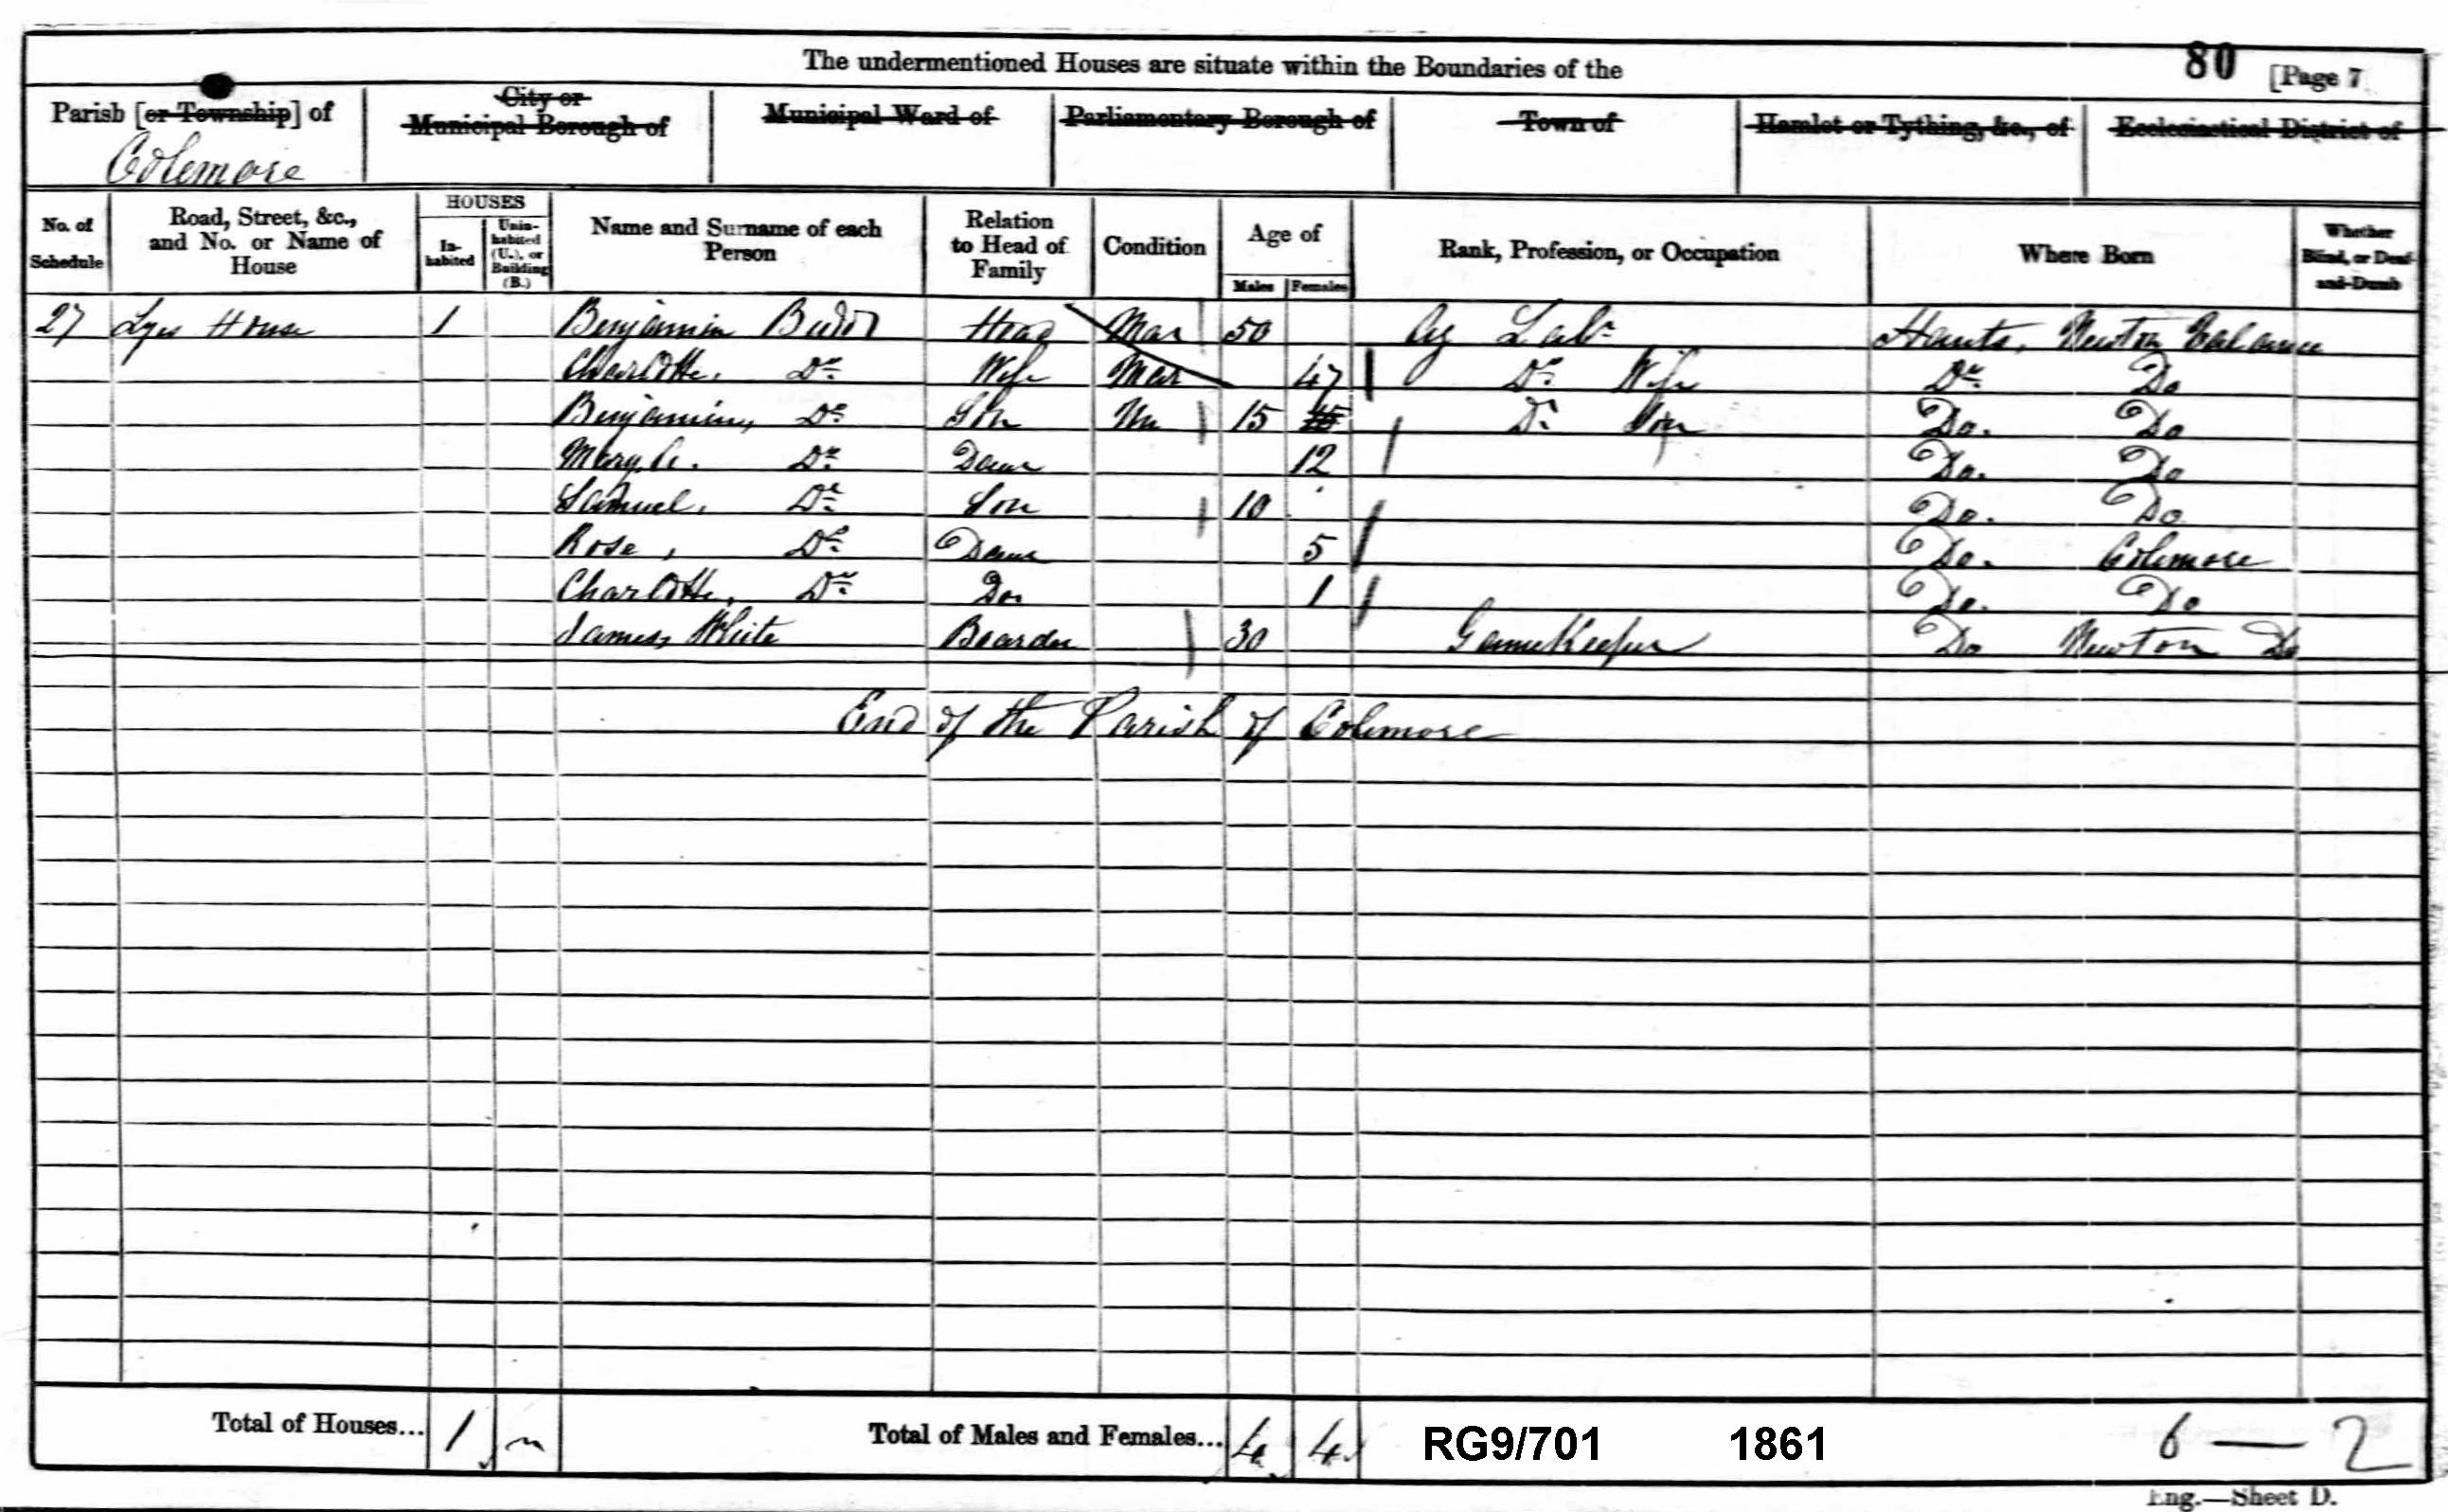 The undermentioned Houses are situate within the Boundaries of the
80 [Page 7
Parish [or Township] of Colemore
City or Municipal Borough of
Municipal Ward of
Parliamentary Borough of
Town of
Hamlet or Tything, &c., of
Ecclesiastical District of
No. of Schedule
Road, Street, &c., and No. or Name of House
HOUSES
In-habited
Unin-habited (U.), or Building (B.)
Name and Surname of each Person
Relation to Head of Family
Condition
Age of
Males Females
Rank, Profession, or Occupation
Where Born
Whether Blind, or Deaf-and-Dumb
27 Lyes House 1 Benjamin Budd Head Mar 50 Ag Labr Hants, Newton Valance
Charlotte, Do Wife Mar 47 Do Wife Do Do
Benjamin, Do Son Un 15 Do Son Do. Do
Mary A. Do Daur 12 Do. Do
Samuel, Do Son 10 Do. Do
Rose, Do Daur 5 Do. Colemore
Charlotte, Do Do. 1 Do. Do
James, White Boarder 30 Gamekeeper Do Newton Do
End of the Parish of Colemore
Total of Houses... 1
Total of Males and Females... 4 4
RG9/701 1861
6 — 2
Eng.—Sheet D.